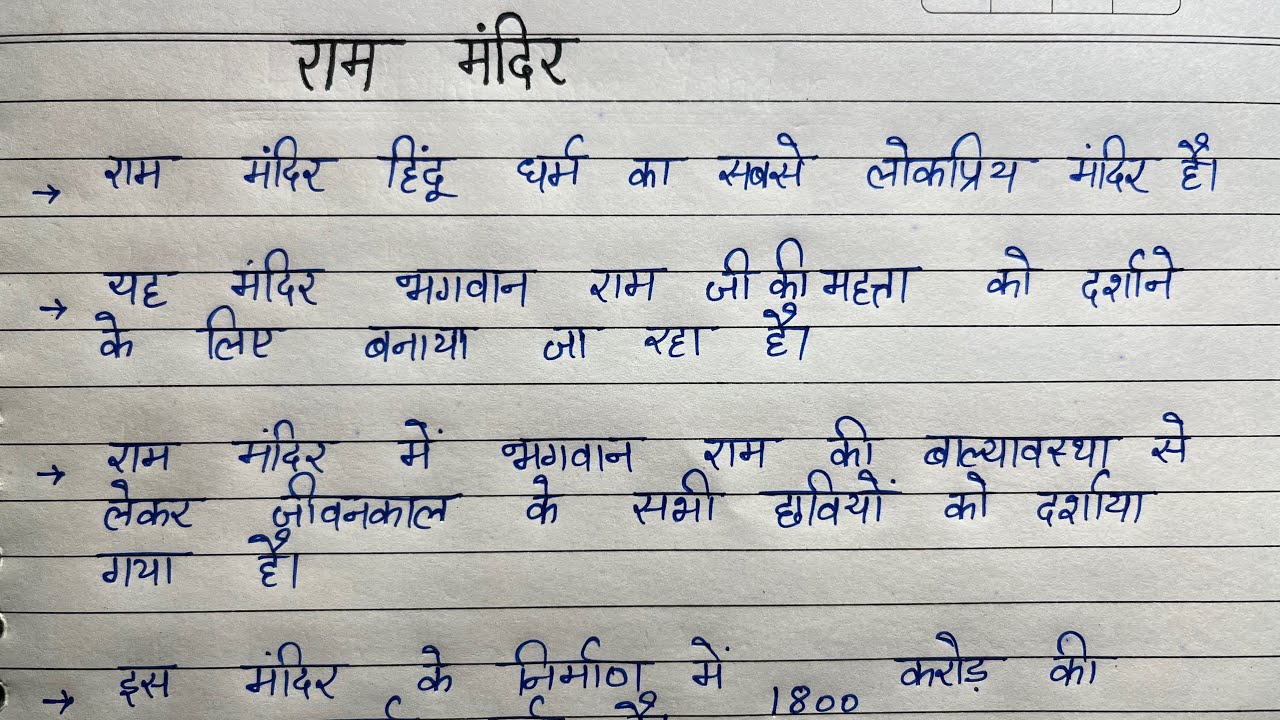 राम मंदिर
→ राम मंदिर हिंदू धर्म का सबसे लोकप्रिय मंदिर है।
→ यह मंदिर भगवान राम जी की महत्ता को दर्शाने
के लिए बनाया जा रहा है।
→ राम मंदिर में भगवान राम की बाल्यावस्था से
लेकर जीवनकाल के सभी छवियों को दर्शाया
गया है।
→ इस मंदिर के निर्माण में 1800 करोड़ की